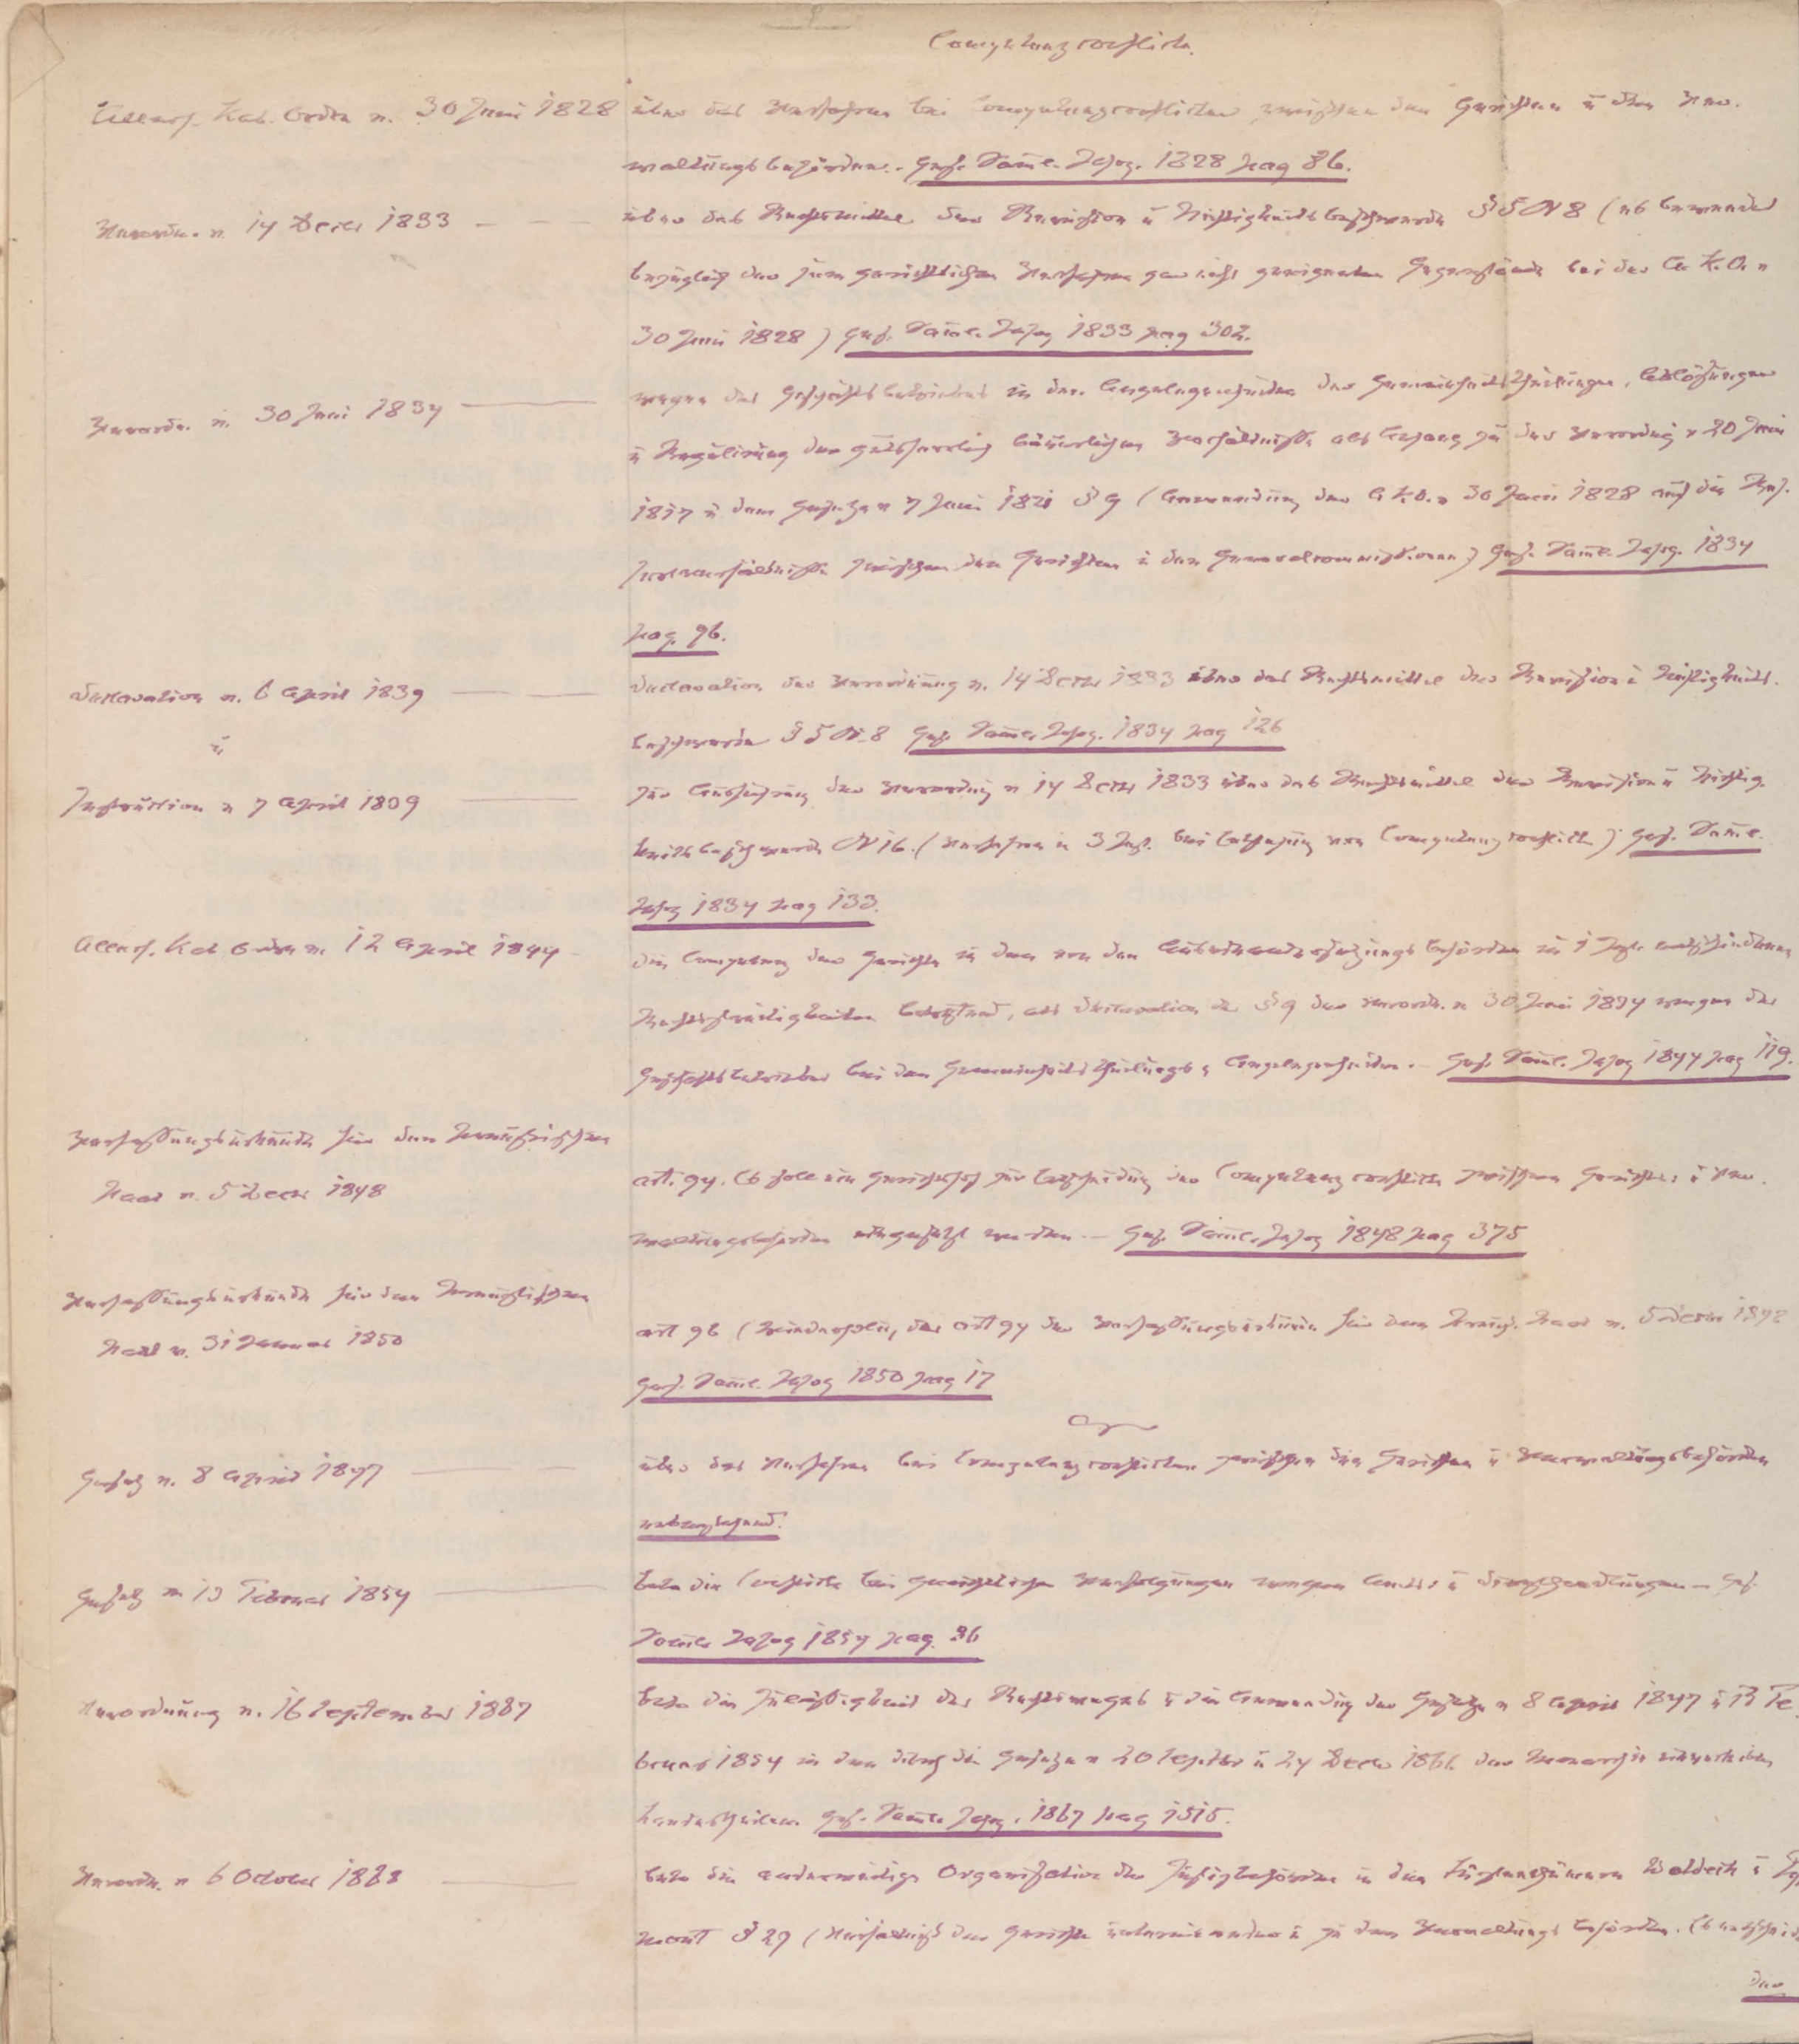 Competenzconflicte.
Allerh. Kab. Ordre v. 30 Juni 1828 über das Verfahren bei Competenzconflicten zwischen den Gerichten u den Ver-
waltungsbehörden. Ges. Samml. Jahrg. 1828 pag 86.
Verordn. v. 14 Decbr 1833 — über das Rechtsmittel der Revision u Nichtigkeitsbeschwerde § 5 N 8 (es bewendet
bezüglich der zum gerichtlichen Verfahren gar nicht geeigneten Gegenstände bei der A. K. O. v
30 Juni 1828) Ges. Samml. Jahrg 1833 pag 302.
Verordn. v. 30 Juni 1834 — wegen des Geschäftsbetriebes in den Angelegenheiten der Gemeinheitstheilungen, Ablösungen
u Regulirung der gutsherrlich bäuerlichen Verhältnisse als Anhang zu der Verordng v 20 Juni
1817 u dem Gesetze v 7 Juni 1821 § 9 (Anwendung der A. K. O. v 30 Juni 1828 auf die
zwischen den Gerichten u den Generalcommissionen) Ges. Samml. Jahrg. 1834
pag. 96.
Declaration v. 6 April 1839 — Declaration der Verordnung v. 14 Decbr 1833 über das Rechtsmittel der Revision u Nichtigkeits-
u
beschwerde § 5 N. 8 Ges. Samml. Jahrg. 1839 pag 126
Instruction v 7 April 1839 — zur Ausführung der Verordng v 14 Decbr 1833 über das Rechtsmittel der Revision u Nichtig-
keitsbeschwerde N 16. (Verfahren in 3 Inst. bei von Competenzconflict) Ges. Samml.
Jahrg 1839 pag 133.
Allerh. Kab. Ordre v. 12 April 1844 — die Competenz der Gerichte in den von den Auseinandersetzungsbehörden in 1 Inst.
Rechtsstreitigkeiten betreffend, als Declaration des § 9 der Verordn. v 30 Juni 1834 wegen des
Geschäftsbetriebes bei den Gemeinheitstheilungs Angelegenheiten. — Ges. Samml. Jahrg 1844 pag 119.
Verfassungsurkunde für den Preussischen
Staat v. 5 Decbr 1848
art. 94. Es soll ein Gerichtshof zur Entscheidung der Competenzconflicte zwischen Gerichten u Ver-
waltungsbehörden eingesetzt werden. — Ges. Samml. Jahrg 1848 pag 375
Verfassungsurkunde für den Preussischen
Staat v. 31 Januar 1850
art 96 (Wiederholung des art 94 der Verfassungsurkunde für den Preuss. Staat v. 5 Decbr 1848
Ges. Samml. Jahrg 1850 pag 17
Gesetz v. 8 April 1847 — über das Verfahren bei Competenzconflicten zwischen den Gerichten u Verwaltungsbehörden
Gesetz v 13 Februar 1854 — betr. die Conflicte bei gerichtlichen Verfolgungen wegen Amts- u Diensthandlungen — Ges.
Samml. Jahrg 1854 pag. 86
Verordnung v. 16 September 1867 betr. die Zulässigkeit des Rechtsweges u die Anwendung der Gesetze v 8 April 1847 u 13 Fe-
bruar 1854 in den durch die Gesetze v 20 Septbr u 24 Decbr 1866 der Monarchie einverleibten
Landestheilen. Ges. Samml. Jahrg. 1867 pag 1515.
Verordn. v 6 October 1868 — betr. die anderweitige Organisation der Justizbehörden in den Fürstenthümern Waldeck u Pyr
mont § 29 (Verhältniss der Gerichte untereinander u zu den Verwaltungsbehörden.